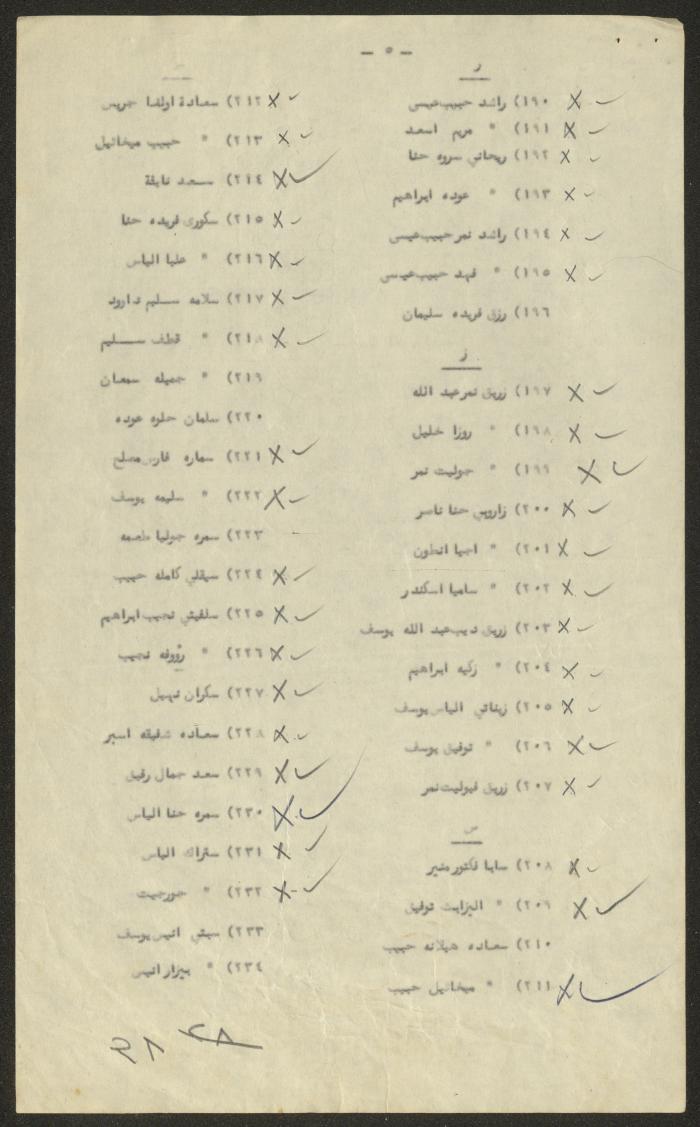 — ٥ —
ر
١٩٠) راشد حبيب عيسى
١٩١) " مريم اسعد
١٩٢) ريحاني سروه حنا
١٩٣) " عوده ابراهيم
١٩٤) راشد نمر حبيب عيسى
١٩٥) " فهد حبيب عيسى
١٩٦) رزق فريده سليمان
ز
١٩٧) زريق نمر عبد الله
١٩٨) " روزا خليل
١٩٩) " جوليت نمر
٢٠٠) زاروبي حنا ناصر
٢٠١) " اجيا انطون
٢٠٢) " ساميا اسكندر
٢٠٣) زريق ديب عبد الله يوسف
٢٠٤) " زكيه ابراهيم
٢٠٥) زيناتي الياس يوسف
٢٠٦) " توفيق يوسف
٢٠٧) زريق فيوليت نمر
س
٢٠٨) سابا فكتور منير
٢٠٩) " اليزابت توفيق
٢١٠) سعاده هيلانه حبيب
٢١١) " ميخائيل حبيب
س
٢١٢) سعادة اولغا جريس
٢١٣) " حبيب ميخائيل
٢١٤) سعد نايفة
٢١٥) سكورى فريده حنا
٢١٦) " عليا الياس
٢١٧) سلامه سليم داوود
٢١٨) " قطف سليم
٢١٩) " جميله سمعان
٢٢٠) سلمان حلوه عوده
٢٢١) سماره فارس مصلح
٢٢٢) " سليمه يوسف
٢٢٣) سمره جوليا طعمه
٢٢٤) سيقلي كامله حبيب
٢٢٥) سلفيتي نجيب ابراهيم
٢٢٦) " رؤوفه نجيب
٢٢٧) سكران نهيل
٢٢٨) سعاده شفيقه اسبر
٢٢٩) سعد جمال رفيق
٢٣٠) سمره حنا الياس
٢٣١) ستراك الياس
٢٣٢) " جورجيت
٢٣٣) سبتي انيس يوسف
٢٣٤) " بيزار انيس